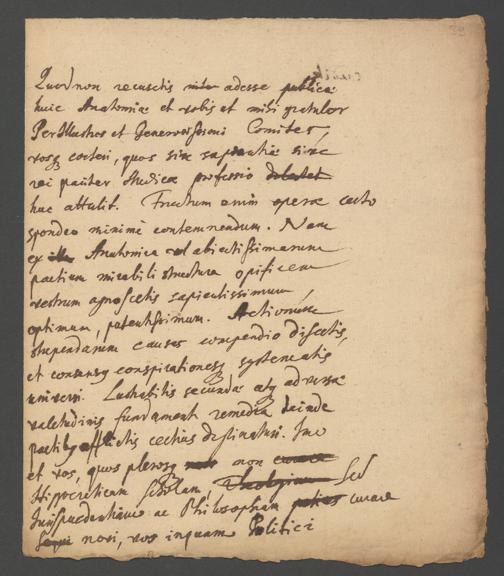 Quod non recusetis adesse publicæ
huic Anatomiæ et vobis et mihi gratulor
PerIllustres et Generosissimi Comites,
vosq cœteri, quos sive sapientiæ sive
rei pariter Medicæ professio
huc attulit. Fructum enim operæ certo
spondeo minimè contemnendum. Nam
ex Anatomica vel abiectissimarum
partium mirabili structura opificem
vestrum agnoscetis sapientissimum,
optimum, potentissimum. Actionum
stupendarum causas compendio discetis,
et consensq conspirationesq systematis
universi. Lustrabitis secundæ atq adversæ
valetudinis fundament remedia deinde
partibq afflictis certius destinaturi. Imo
et vos, quos plerosq non
Hippocraticam scholam, sed
Jurisprudentiam ac Philosophiam curare
novi, vos inquam Politici